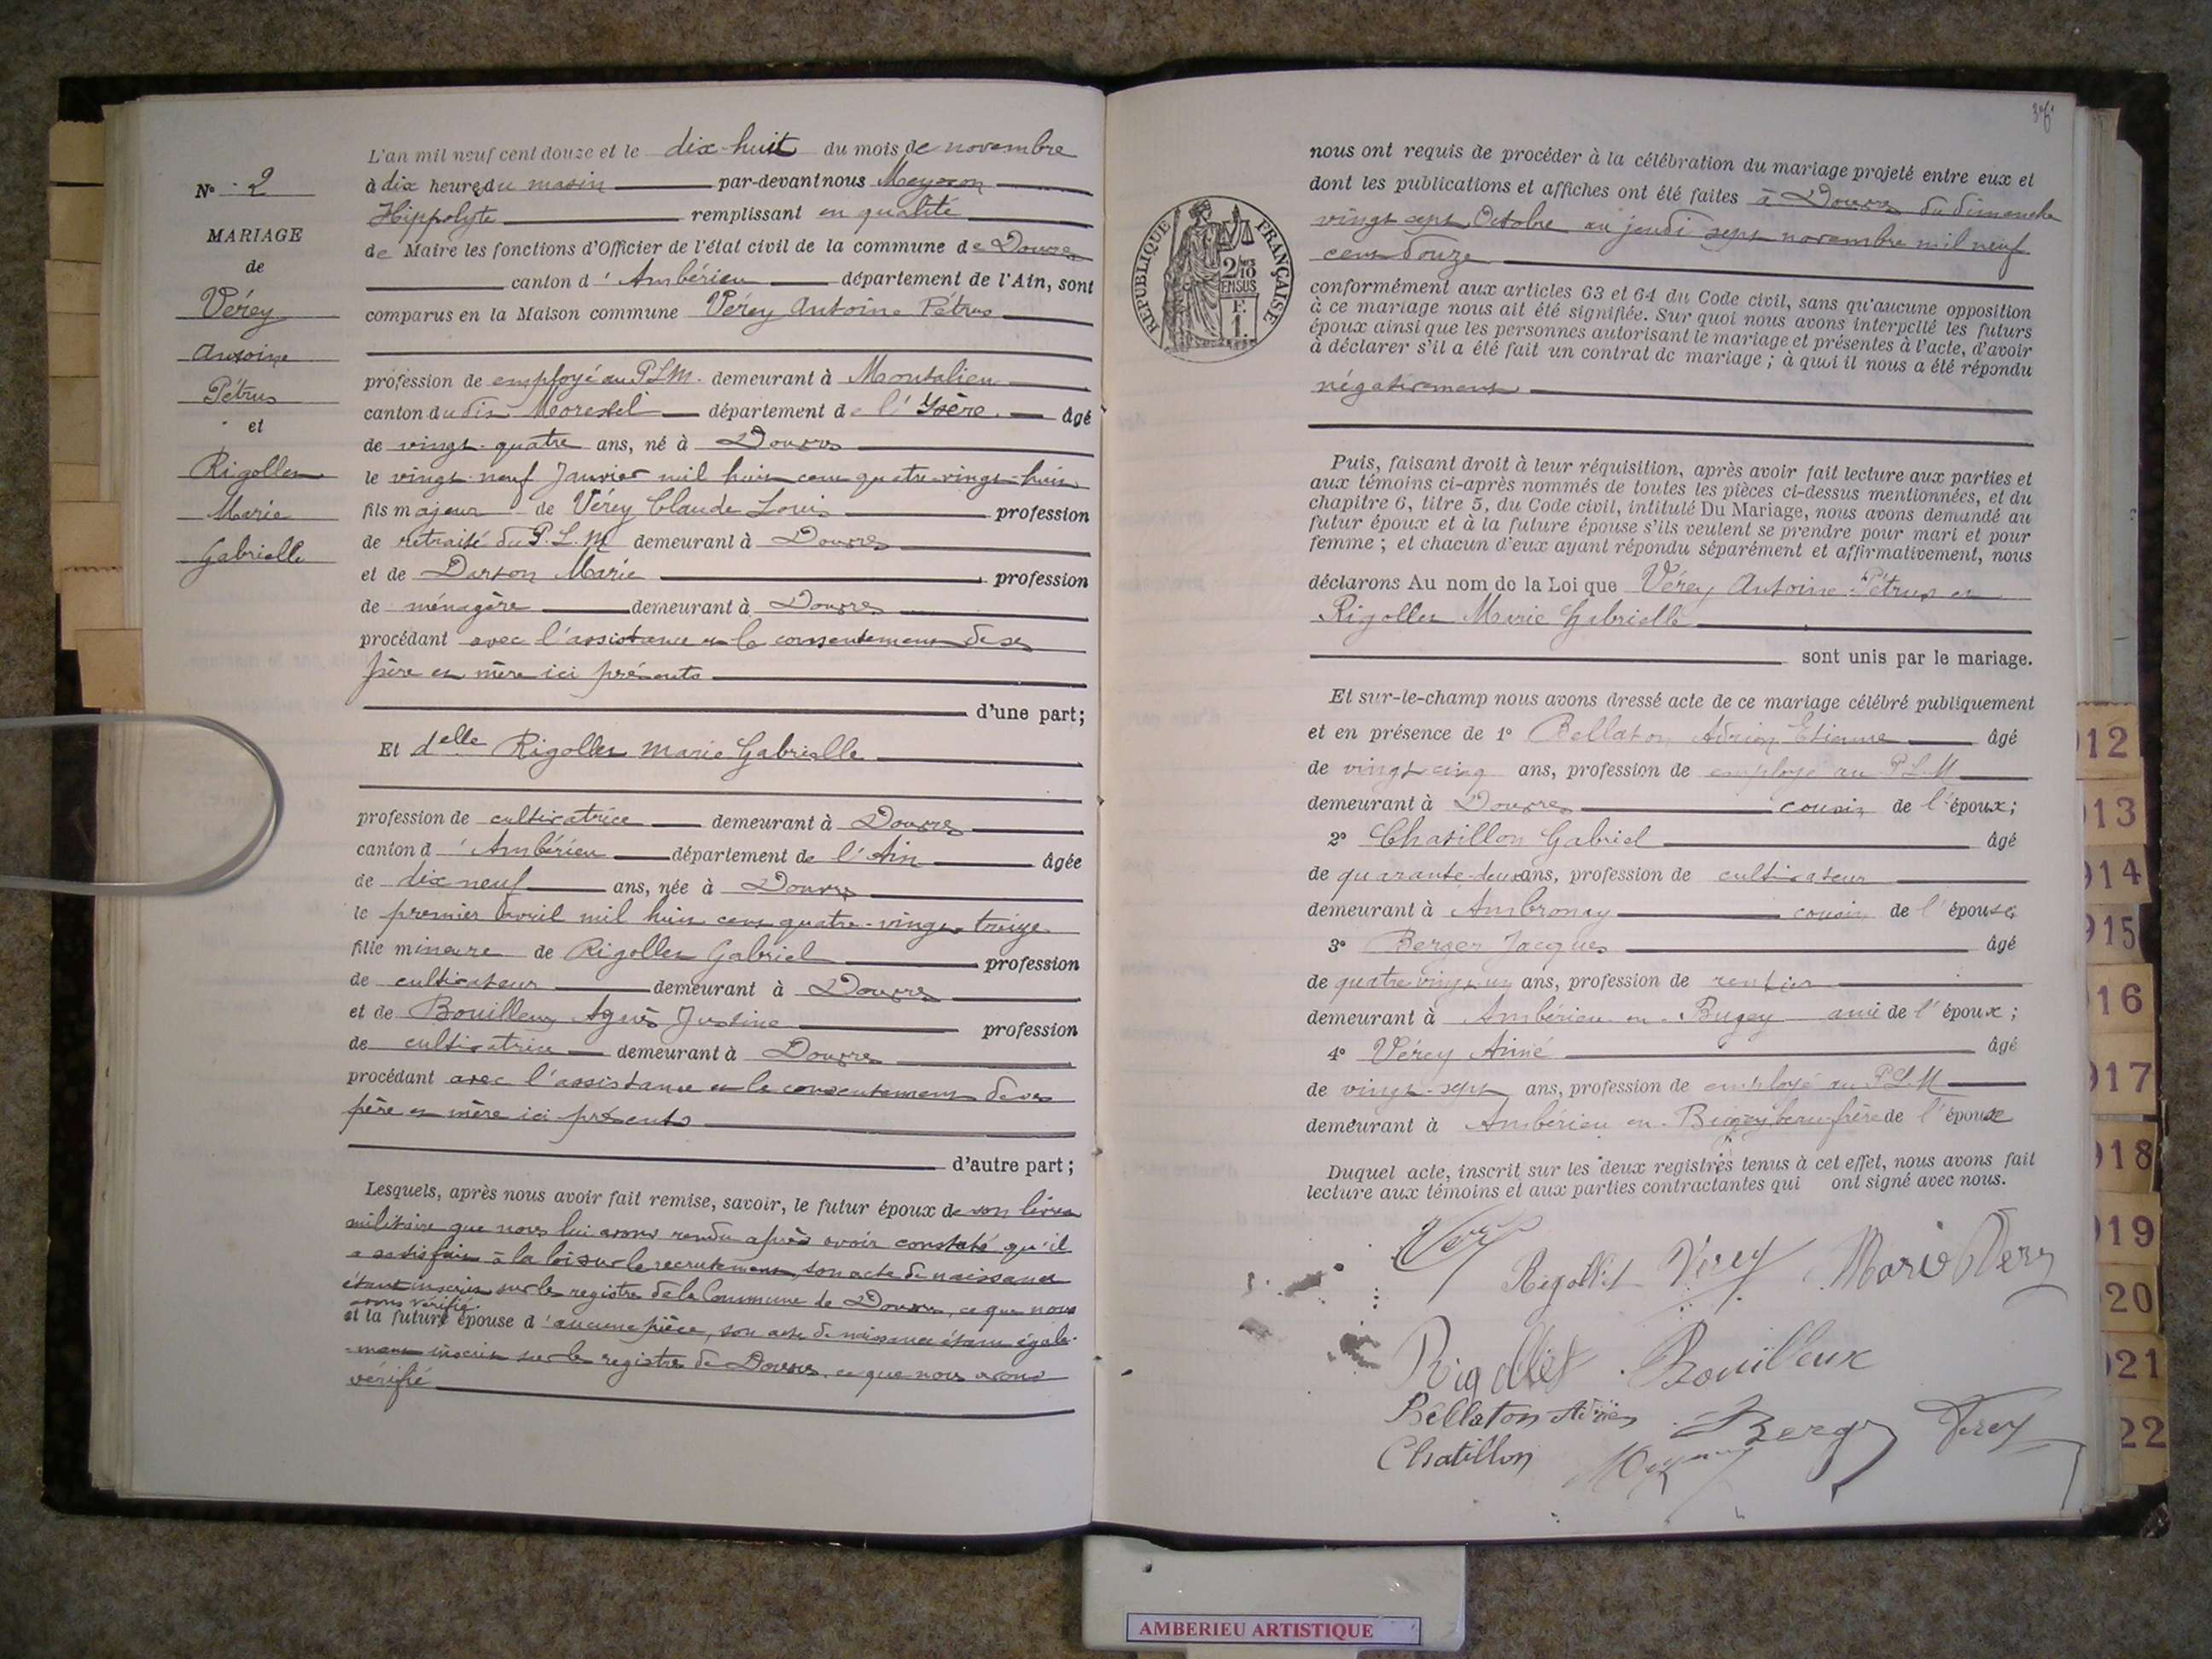 N° 2
MARIAGE
de
Vérey
Antoine
Pétrus
et
Rigollet
Marie
Gabrielle
L'an mil neuf cent douze et le dix-huit du mois de novembre
à dix heures du matin par-devant nous Meyson
Hippolyte remplissant en qualité
de Maire les fonctions d'Officier de l'état civil de la commune de Douvres
canton d'Ambérieu département de l'Ain, sont
comparus en la Maison commune Vérey Antoine Pétrus
profession de employé au P.L.M. demeurant à Montalieu
canton du dit Morestel département de l'Isère âgé
de vingt-quatre ans, né à Douvres
le vingt-neuf Janvier mil huit cent quatre-vingt-huit
fils majeur de Vérey Claude Louis profession
de retraité du P.L.M demeurant à Douvres
et de Darson Marie profession
de ménagère demeurant à Douvres
procédant avec l'assistance et le consentement de ses
père et mère ici présents
d'une part;
Et delle Rigollet Marie Gabrielle
profession de cultivatrice demeurant à Douvres
canton d'Ambérieu département de l'Ain âgée
de dix neuf ans, née à Douvres
le premier Avril mil huit cent quatre-vingt treize
fille mineure de Rigollet Gabriel profession
de cultivateur demeurant à Douvres
et de Bouilleux Agnès Justine profession
de cultivatrice demeurant à Douvres
procédant avec l'assistance et le consentement de ses
père et mère ici présents
d'autre part;
Lesquels, après nous avoir fait remise, savoir, le futur époux de son livret
militaire que nous lui avons rendu après avoir constaté qu'il
a satisfait à la loi sur le recrutement, son acte de naissance
étant inscrit sur le registre de la Commune de Douvres, ce que nous
avons vérifié.
et la future épouse d'aucune pièce, son acte de naissance étant égale-
-ment inscrit sur le registre de Douvres, ce que nous avons
vérifié
RÉPUBLIQUE FRANÇAISE
2/10
EN SUS
F.
1.
nous ont requis de procéder à la célébration du mariage projeté entre eux et
dont les publications et affiches ont été faites à Douvres du dimanche
vingt sept Octobre au jeudi sept novembre mil neuf
cent douze
conformément aux articles 63 et 64 du Code civil, sans qu'aucune opposition
à ce mariage nous ait été signifiée. Sur quoi nous avons interpellé les futurs
époux ainsi que les personnes autorisant le mariage et présentes à l'acte, d'avoir
à déclarer s'il a été fait un contrat de mariage; à quoi il nous a été répondu
négativement
Puis, faisant droit à leur réquisition, après avoir fait lecture aux parties et
aux témoins ci-après nommés de toutes les pièces ci-dessus mentionnées, et du
chapitre 6, titre 5, du Code civil, intitulé Du Mariage, nous avons demandé au
futur époux et à la future épouse s'ils veulent se prendre pour mari et pour
femme; et chacun d'eux ayant répondu séparément et affirmativement, nous
déclarons Au nom de la Loi que Vérey Antoine Pétrus et
Rigollet Marie Gabrielle
sont unis par le mariage.
Et sur-le-champ nous avons dressé acte de ce mariage célébré publiquement
et en présence de 1° Bellaton Adrien Etienne âgé
de vingt cinq ans, profession de employé au P.L.M
demeurant à Douvres cousin de l'époux;
2° Chatillon Gabriel âgé
de quarante-deux ans, profession de cultivateur
demeurant à Ambronay cousin de l'épouse
3° Berger Jacques âgé
de quatre vingt un ans, profession de rentier
demeurant à Ambérieu-en-Bugey ami de l'époux;
4° Vérey Aimé âgé
de vingt-sept ans, profession de employé au P.L.M
demeurant à Ambérieu en-Bugey beau frère de l'épouse
Duquel acte, inscrit sur les deux registres tenus à cet effet, nous avons fait
lecture aux témoins et aux parties contractantes qui ont signé avec nous.
Verey
Rigollet Verey Marie Verey
Rigollet Bouilleux
Bellaton Adrien Berger Verey
Chatillon
912
913
914
915
916
917
918
919
920
921
922
AMBERIEU ARTISTIQUE